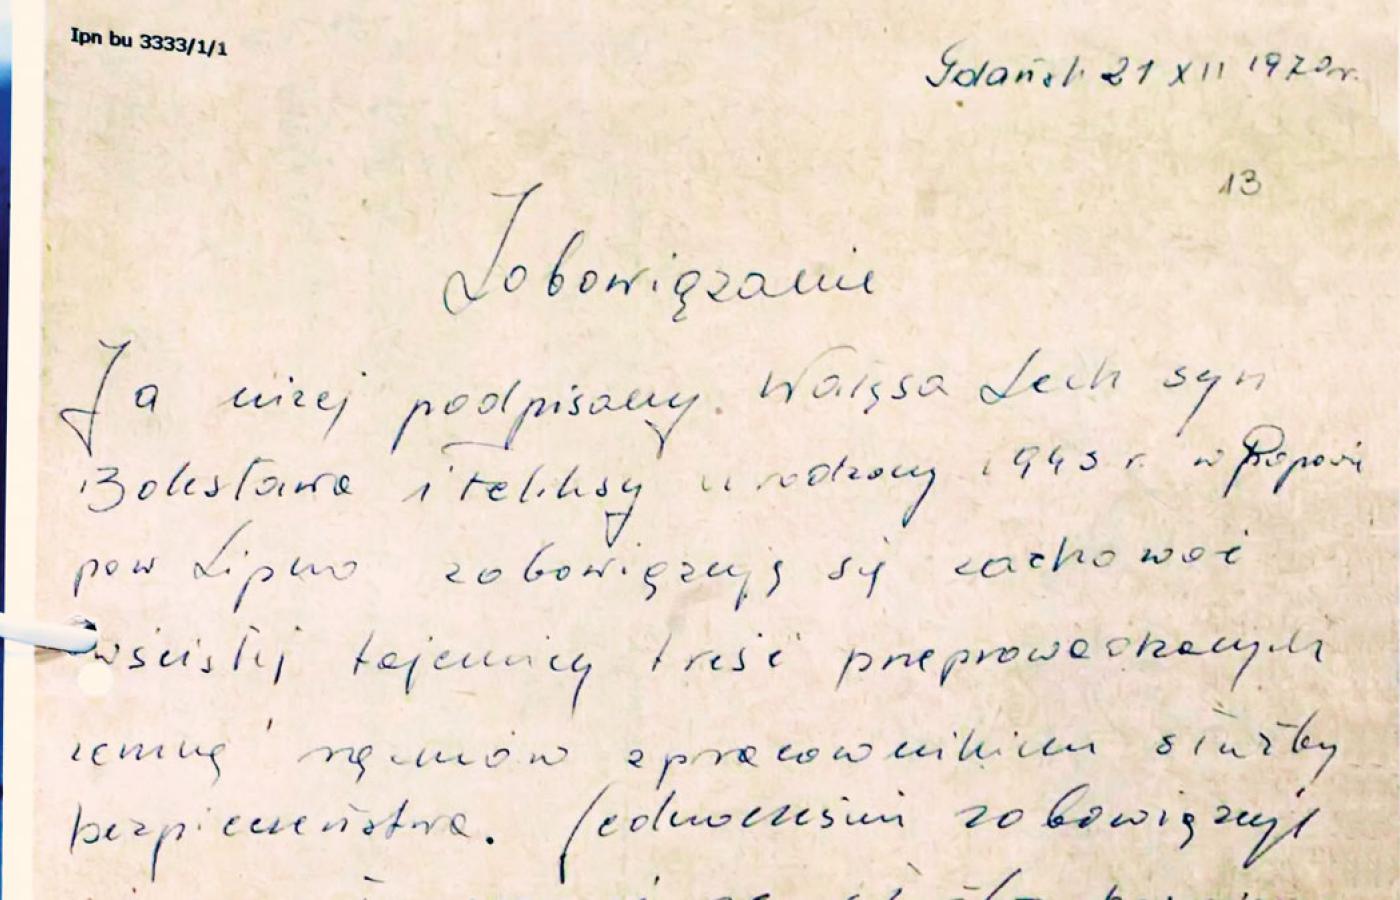 Ipn bu 3333/1/1
Gdańsk 21 XII 1970r.
13
Zobowiązanie
Ja niżej podpisany. Wałęsa Lech syn
Bolesława i Feliksy urodzony 1943 r. w Popowi
pow Lipno zobowiązują się zachować
wścisłej tajemnicy treść przeprowadzanych
zemną rozmów zpracownikiem służby
bezpieczeństwa. Jednocześnie zobowiązuję